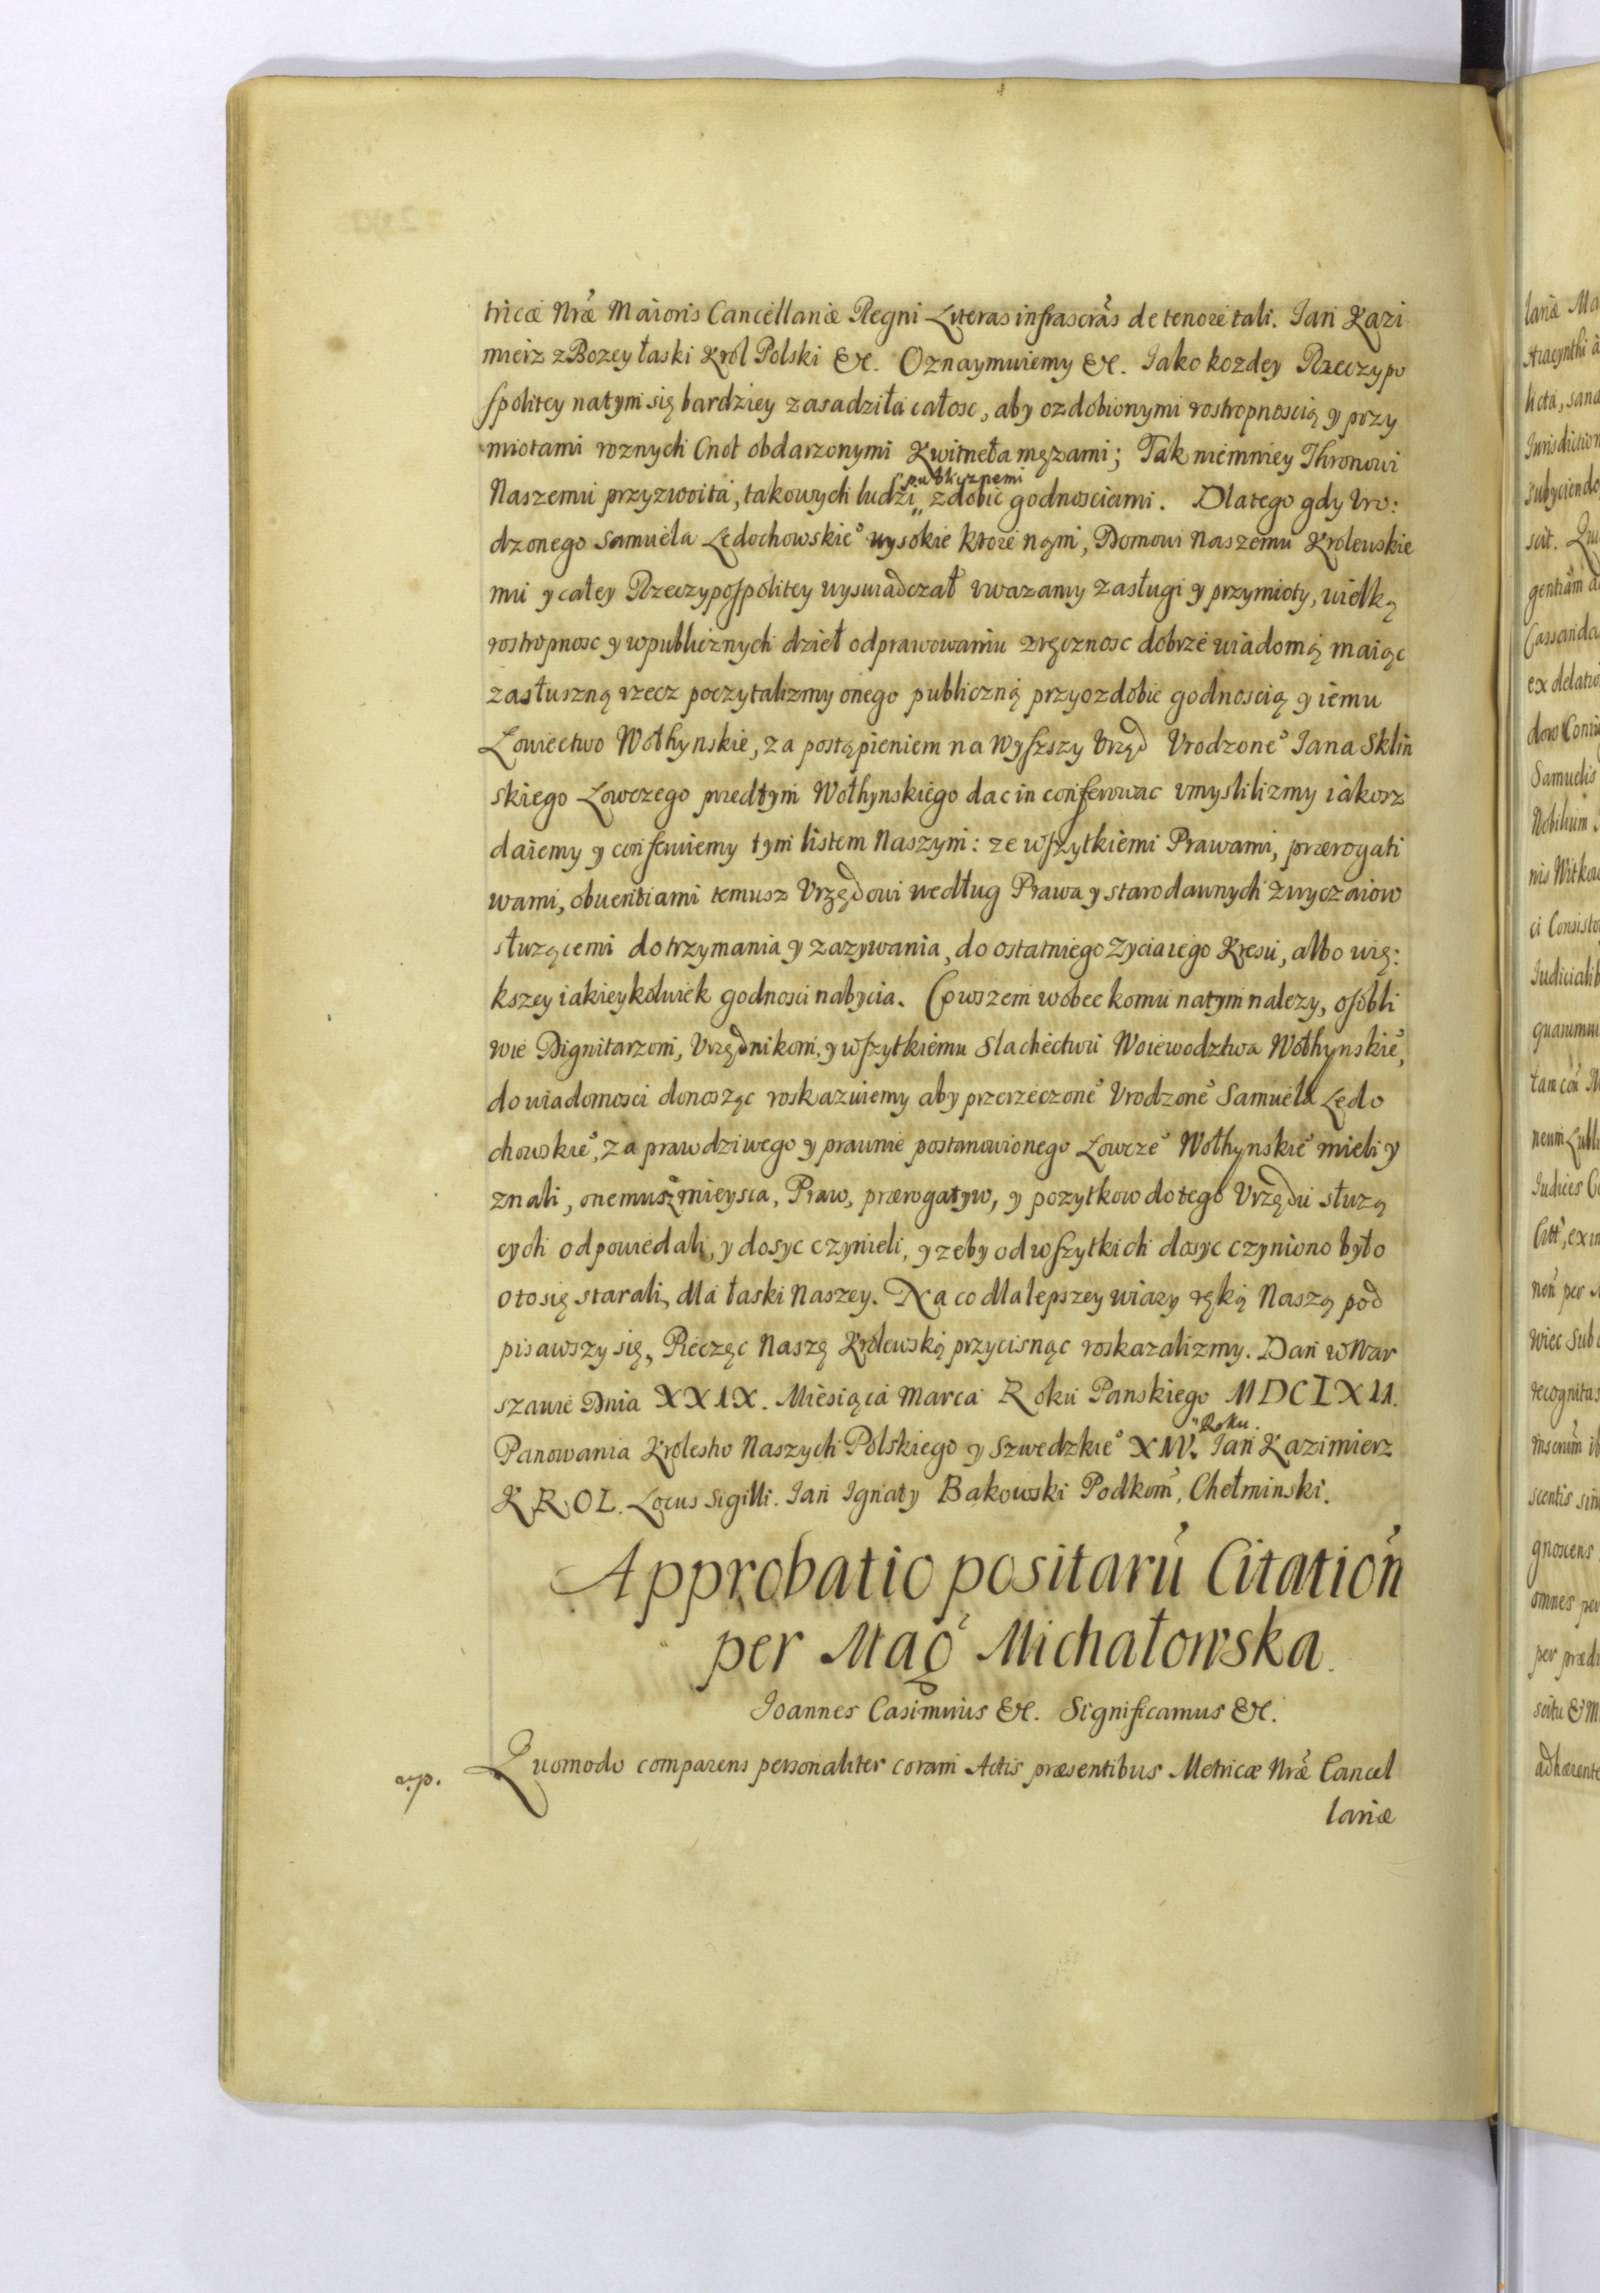 tricæ Nræ Maioris Cancellariæ Regni Literas infrascrãs de tenore tali. Jan Kazi
mierz z Bozey łaski Krol Polski &c. Oznaymuiemy &c. Jako kozdey Rzeczypo
spolitey natym się bardziey zasadziła całosc, aby ozdobionymi rostropnoscią y przy
miotami roznych Cnot obdarzonymi Kwitneła męzami; Tak niemniey Thronowi
Naszemu przyzwoita, takowych ludzi „publicznemi zdobic godnosciami. Dlatego gdy Vro:
dzonego Samuela Lędochowskie° wysokie ktore nąm, Domowi Naszemu Krolewskie
mu y całey Rzeczypospolitey wyswiadczał vwazamy zasługi y przymioty, wielką
rostropnosc y w publicznych dzieł odprawowaniu zręcznosc dobrze wiadomą maiąc
za słuszną rzecz poczytalizmy onego publiczną przyozdobic godnoscią y iemu
Łowiectwo Wołhynskie, za postąpieniem na Wyszszy Vrząd Vrodzone° Jana Sklin
skiego Łowczego przedtym Wołhynskiego dac in conferowac vmyslilizmy iakosz
daiemy y conferuiemy tym listem Naszym: ze wszytkiemi Prawami, prærogati
wami, obuentiami temusz Vrzędowi według Prawa y starodawnych zwyczaiow
słuzącemi do trzymania y zazywania, do ostatniego Zycia iego Kresu, albo wię:
kszey iakieykolwiek godnosci nabycia. Co wszem wobec komu natym nalezy, osobli
wie Dignitarzom, Vrzędnikom, y wszytkiemu Slachectwu Woiewodztwa Wołhynskie°,
do wiadomosci donosząc roskazuiemy aby przerzeczone° Vrodzone° Samuela Lędo
chowskie°, za prawdziwego y prawnie postanowionego Łowcze° Wołhynskie° mieli y
znali, onemusz mieysca, Praw, prærogatyw, y pozytkow do tego Vrzędu słuzą
cych odpowiedali, y dosyc czynieli, y zeby od wszytkich dosyc czyniono było
oto się starali, dla łaski Naszey. Na co dla lepszey wiary ręką Naszą pod
pisawszy się, Pieczęc Naszę Krolewską przycisnąc roskazalizmy. Dan w War
szawie Dnia XXIX. Miesiąca Marca Roku Panskiego MDCLXII.
Panowania Krolestw Naszych Polskiego y Szwedzkie° XIV. „Roku. Jan Kazimierz
KROL. Locus Sigilli. Jan Ignaty Bąkowski Podkom, Chełminski.
Approbatio positarũ Citation
per Mag Michałowska.
Joannes Casimirus &c. Significamus &c.
Quomodo comparens personaliter coram Actis præsentibus Metricæ Nræ Cancel
lariæ